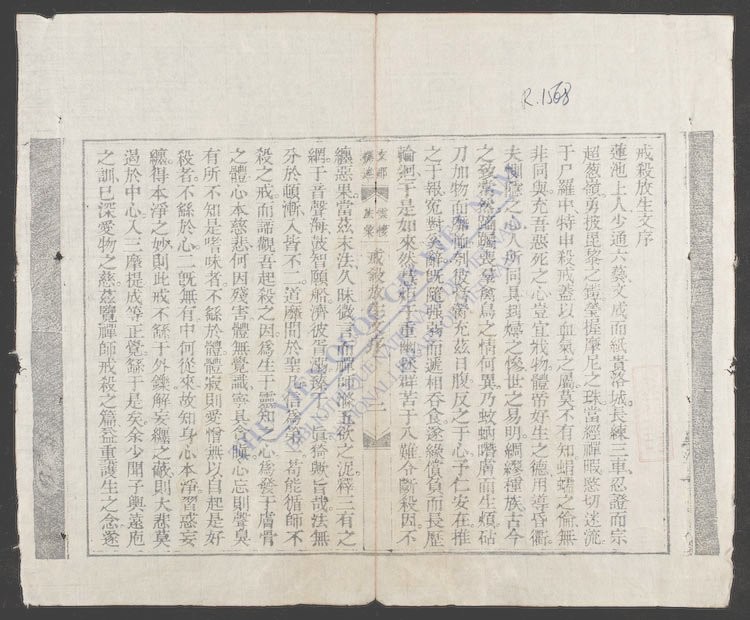 R.1568
戒殺放生文序
蓮池上人少通六藝文成而紙貴洛城長練三車忍證而宗
超葱嶺勇披毘黎之鎧瑩握摩尼之珠當經禪暇愍切迷流
于尸羅中特申殺戒蓋以血氣之屬莫不有知蜎蠕之倫無
非同與充吾惡死之心豈宜戕物體帝好生之德用導昏衢
夫惻隱之心人所同具到燖之慘世之易明綢繆種族古今
之致藹然踟躕喪羣禽鳥之情何異乃蚊蚋嚌膚而生頳砧
刀加物而 彼膏 充茲口腹反之于心予仁安在推
之于報寃對奚辭旣隨強弱而遞相吞食遂緣償負而長歷
輪迴于是如來然慧炬于重幽拯群苦于八難令斷殺因不
支那撰述
雲棲法彙
戒殺放生序
一
纏惡果當茲末法久昧微言而禪師滌五欲之泥釋三有之
網于音聲海鼓智願船濟彼胥溺臻于 眞猗歟旨哉法無
分於頓漸入皆不二道靡間於聖凡 為第一苟能循師不
殺之戒而諦觀吾起殺之因為生于靈知之心為發于膚骨
之體心本慈悲何因殘害體無覺識寧具貪瞋心忘則聲臭
有所不知是嗜味者不緣於體體寂則愛憎無以自起是好
殺者不緣於心二旣無有中何從來故知身心本淨習惑妄
纏得本淨之妙則此戒不緣于外鑠解妄纏之蔽則大悲莫
遏於中心入三摩提成等正覺繇于是矣余少聞子輿遠庖
之訓已深愛物之慈茲覽禪師戒殺之篇益重護生之念遂